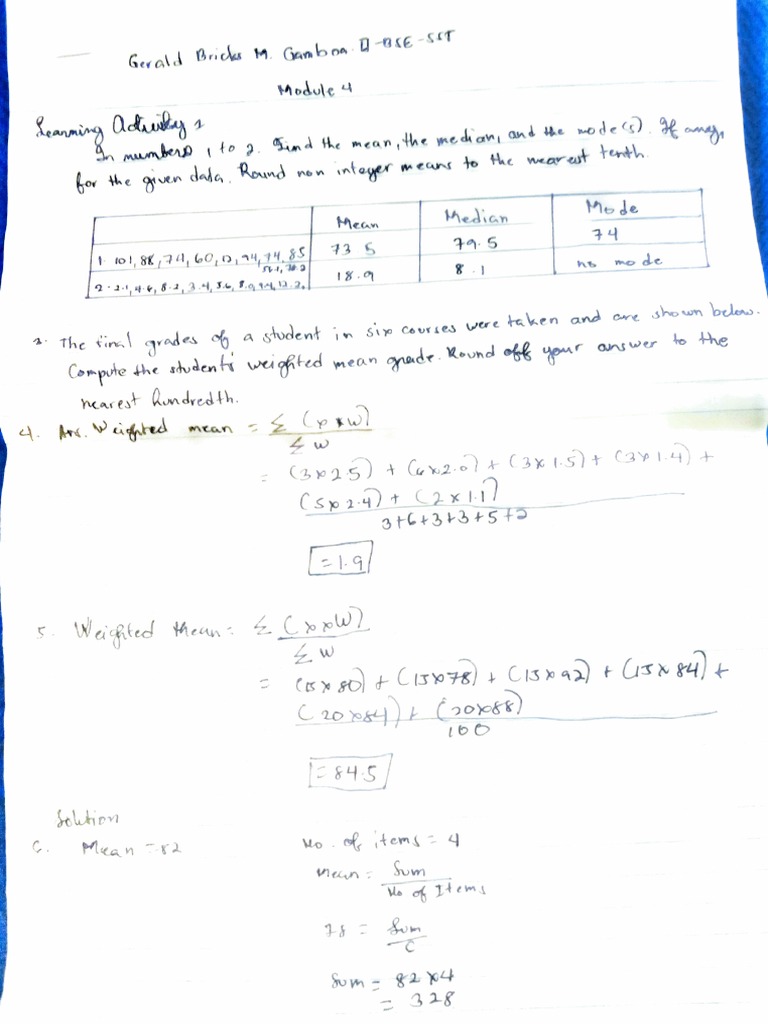 Gerald Bricks M. Gamboa II-BSE-SST
Module 4
Learning Activity 1
In numbers 1 to 2. Find the mean, the median, and the mode(s). If any,
for the given data. Round non integer means to the nearest tenth.
Mean Median Mode
1. 101, 88, 74, 60, 12, 94, 74, 85 73.5 79.5 74
18.9 8.1 no mode
The final grades of a student in six courses were taken and are shown below.
Compute the student's weighted mean grade. Round off your answer to the
nearest hundredth.
4. Ans. Weighted mean = Σ (x * W)
Σ W
= (3 x 2.5) + (6 x 2.0) + (3 x 1.5) + (3 x 1.4) +
(5 x 2.4) + (2 x 1.1)
3+6+3+3+5+2
= 1.9
5. Weighted Mean = Σ (x x W)
Σ W
= (15 x 80) + (15 x 78) + (15 x 92) + (15 x 84) +
(20 x 84) + (20 x 88)
100
= 84.5
Solution
Mean = 82 No. of items = 4
Mean = Sum
No of Items
= Sum
Sum = 82 x 4
= 328